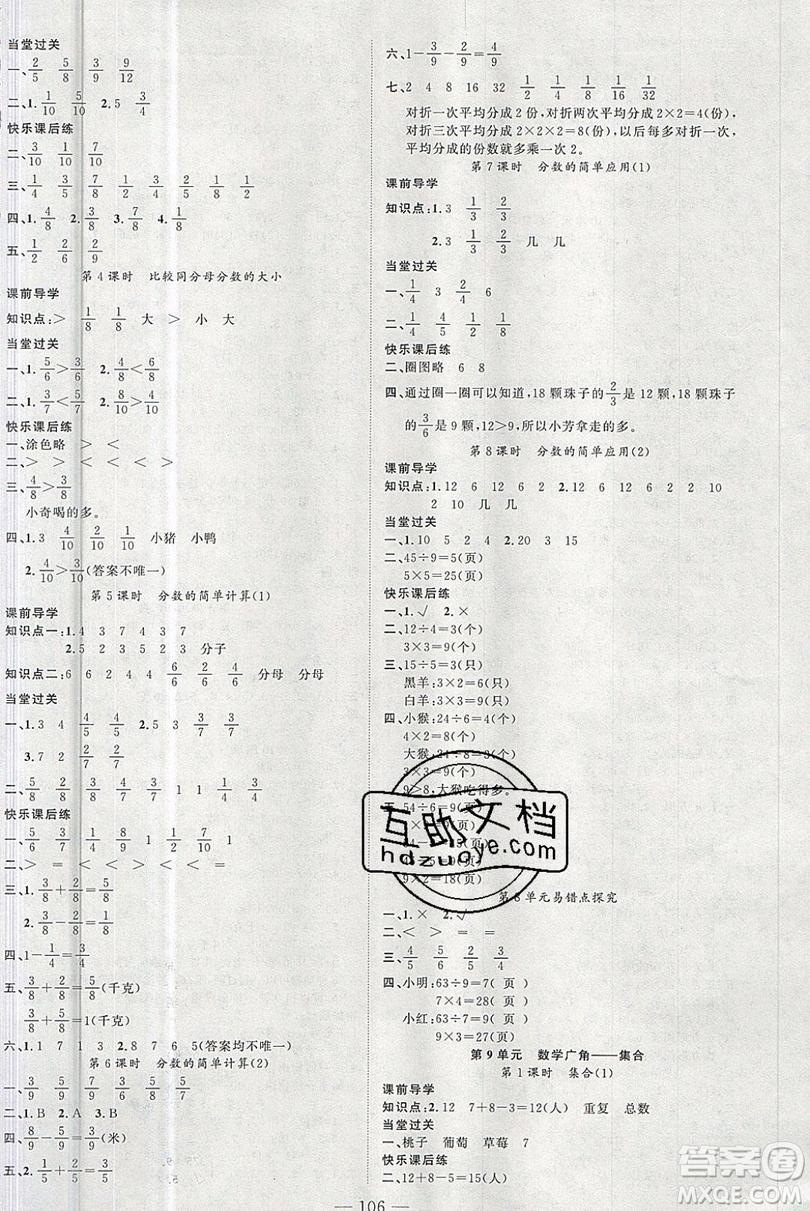 当堂过关
一、2/5 5/8 3/9 9/12
二、1. 1/10 5/10 2. 5 3/4
快乐课后练
二、3/10 7/10
三、1/4 3/5 1/8 2/9 3/10 1/4
四、1. 4/8 2. 3/8 3. 7/9 4. 1/8
五、1/2 2/6 2/9
第4课时 比较同分母分数的大小
课前导学
知识点:＞ 1/8 1/8 大 ＞ 小 大
当堂过关
一、1. 5/6＞3/6 2. 4/8＜6/8
二、1. 3/7＜5/7 2. 8/10＞4/10
快乐课后练
一、涂色略 ＞ ＜
二、＞ ＜ ＞ ＜
三、4/8＞3/8
小奇喝的多。
四、1. 3 4/10 2/10 1/10 小猪 小鸭
2. 4/10＞3/10(答案不唯一)
第5课时 分数的简单计算(1)
课前导学
知识点一:1. 4 3 7 4 3 7
2. 5 2 3 5 2 3 分子
知识点二:6 6 2 4 4 6/6 2/6 4/6 分母 分母
当堂过关
一、1. 3 4 4/5 4/5 2. 5 3 2/8 2/8
3. 7 2
二、
快乐课后练
一、5/7 5/6 1/3 1 1/7 2/4
二、＞ ＝ ＜ ＜ ＜ ＜ ＞
三、1. 3/9+2/9=5/9
2. 3/9+5/9=8/9
四、1-1/4=3/4
五、3/8+2/8=5/8(千克)
3/8+5/8=1(千克)
六、1. 1 7 2. 1 8 7 6 5(答案均不唯一)
第6课时 分数的简单计算(2)
一、3/7 2/9 3/4 5/6 5/8 2/5 4/7 3/8
二、1. B 2. A 3. B
四、8/9-5/9=3/9(米)
五、2. 1/5+3/5=4/5
六、1-3/9-2/9=4/9
七、2 4 8 16 32 1/2 1/4 1/8 1/16 1/32
对折一次平均分成2份,对折两次平均分成2×2=4(份)
对折三次平均分成2×2×2=8(份),以后每多对折一次
平均分成的份数就多乘一次2。
第7课时 分数的简单应用(1)
课前导学
知识点:1. 3 1/3 2/3
2. 3 1/3 2/3 几 几
当堂过关
一、1/4 3 2/4 6
二、1/4 4/5 1/2 1/9
快乐课后练
二、圈图略 6 8
四、通过圈一圈可以知道,18颗珠子的2/3是12颗,18颗珠子
的3/6是9颗,12＞9,所以小芳拿走的多。
第8课时 分数的简单应用(2)
课前导学
知识点:1. 12 6 12 6 2 2. 10 2 10 2 2 10
2 10 几 几
当堂过关
一、1. 10 5 2 4 2. 20 3 15
二、45÷9=5(页)
5×5=25(页)
快乐课后练
一、1. √ 2. ×
二、12÷4=3(个)
3×3=9(个)
三、15÷5=3(只)
黑羊:3×2=6(只)
白羊:3×3=9(只)
四、小猴:24÷6=4(个)
4×2=8(个)
大猴:24÷8=3(个)
3×3=9(个)
9＞8,大猴吃得多。
五、54÷6=9(页)
9×2=18(页)
互助文档
hdzuoye.com
第8单元易错点探究
一、1. × 2. √
二、＜ ＞ ＝ ＝
三、4/5 4/5 2/5 3/4
四、小明:63÷9=7(页)
7×4=28(页)
小红:63÷7=9(页)
9×3=27(页)
第9单元 数学广角——集合
第1课时 集合(1)
课前导学
知识点:2. 12 7+8-3=12(人) 重复 总数
当堂过关
一、桃子 葡萄 草莓 7
快乐课后练
二、12+8-5=15(人)
— 106 —
答案圈
MXQE.COM